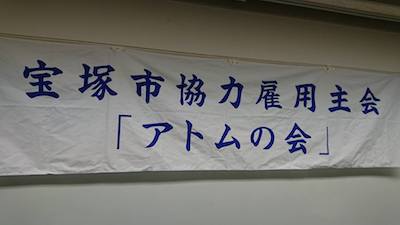 宝塚市協力雇用主会
「アトムの会」